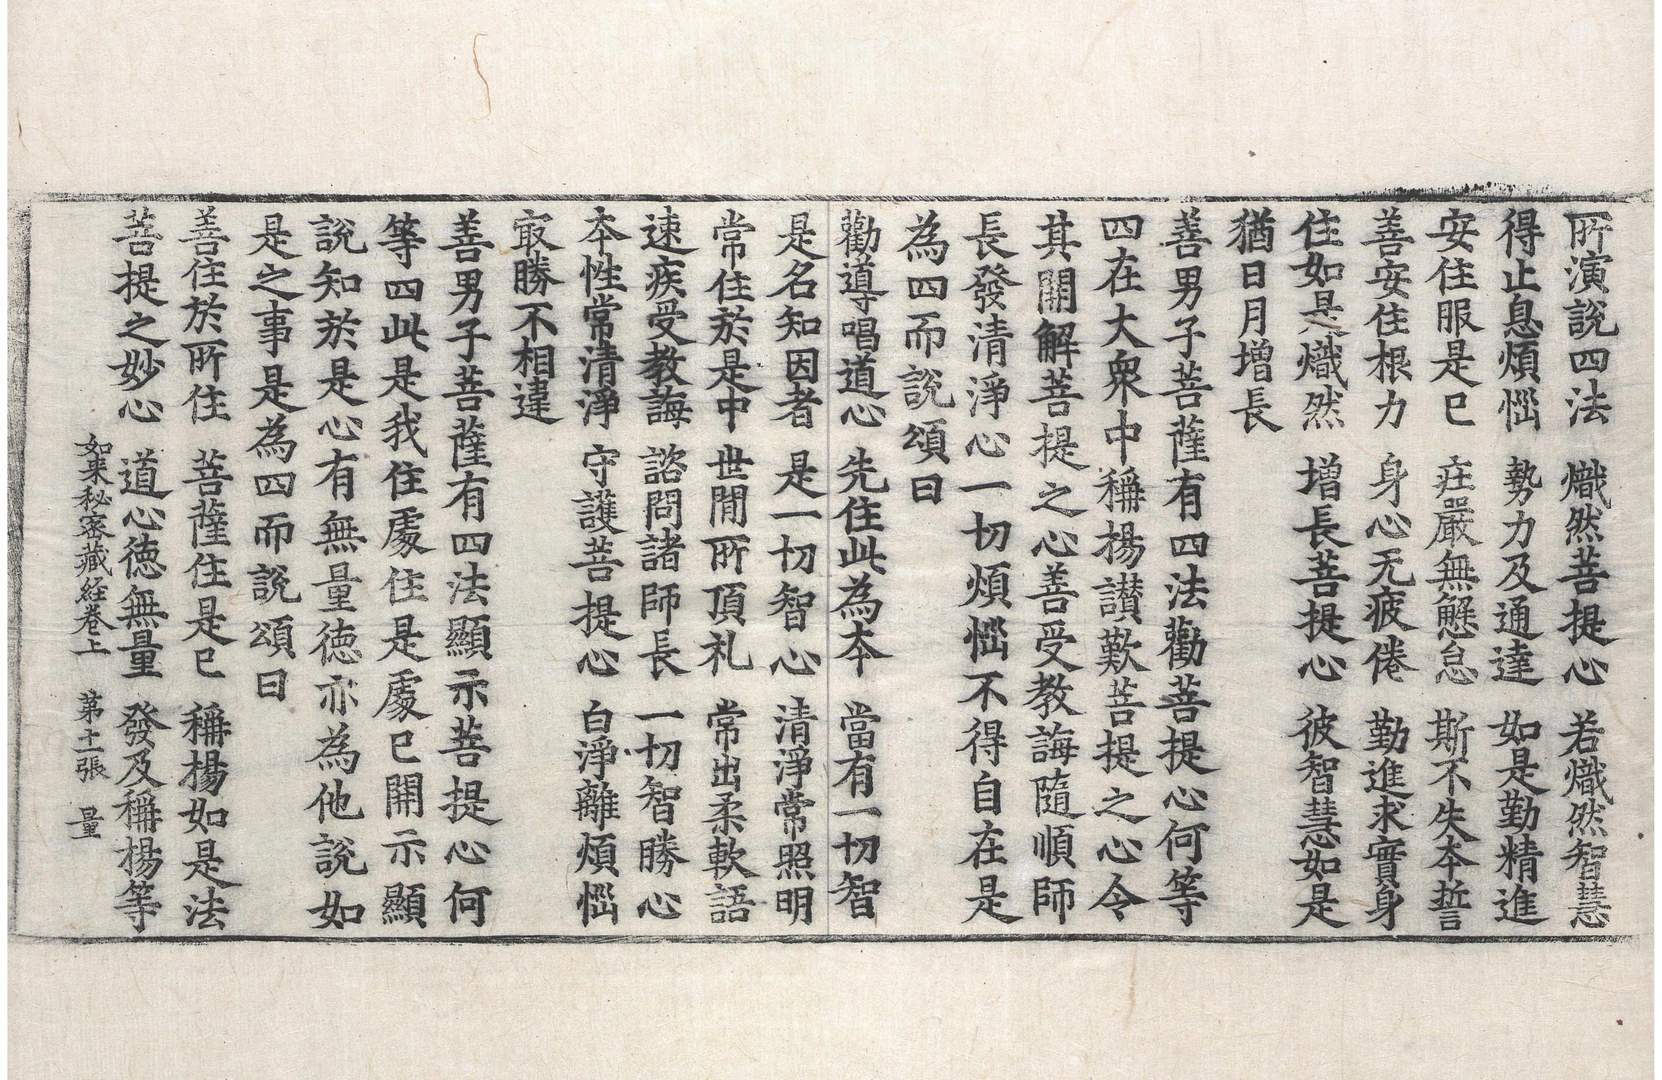 所演說四法 熾然菩提心 若熾然智慧
得止息煩惱 勢力及通達 如是勤精進
安住服是已 㽵嚴無懈怠 斯不失本誓
善安住根力 身心无疲倦 勤進求實身
住如是熾然 增長菩提心 彼智慧如是
猶日月增長
善男子菩薩有四法勸菩提心何等
四在大衆中稱揚讃歎菩提之心令
其開解菩提之心善受教誨隨順師
長發清淨心一切煩惱不得自在是
為四而說頌曰
勸導唱道心 先住此為本 當有一切智
是名知因者 是一切智心 清淨常照明
常住於是中 世間所頂礼 常出柔軟語
速疾受教誨 諮問諸師長 一切智勝心
本性常清淨 守護菩提心 白淨離煩惱
㝡勝不相違
善男子菩薩有四法顯示菩提心何
等四此是我住處住是處已開示顯
說知於是心有無量德亦為他說如
是之事是為四而說頌曰
善住於所住 菩薩住是已 稱揚如是法
菩提之妙心 道心德無量 發及稱揚等
如来秘密藏経卷上 第十一張 量